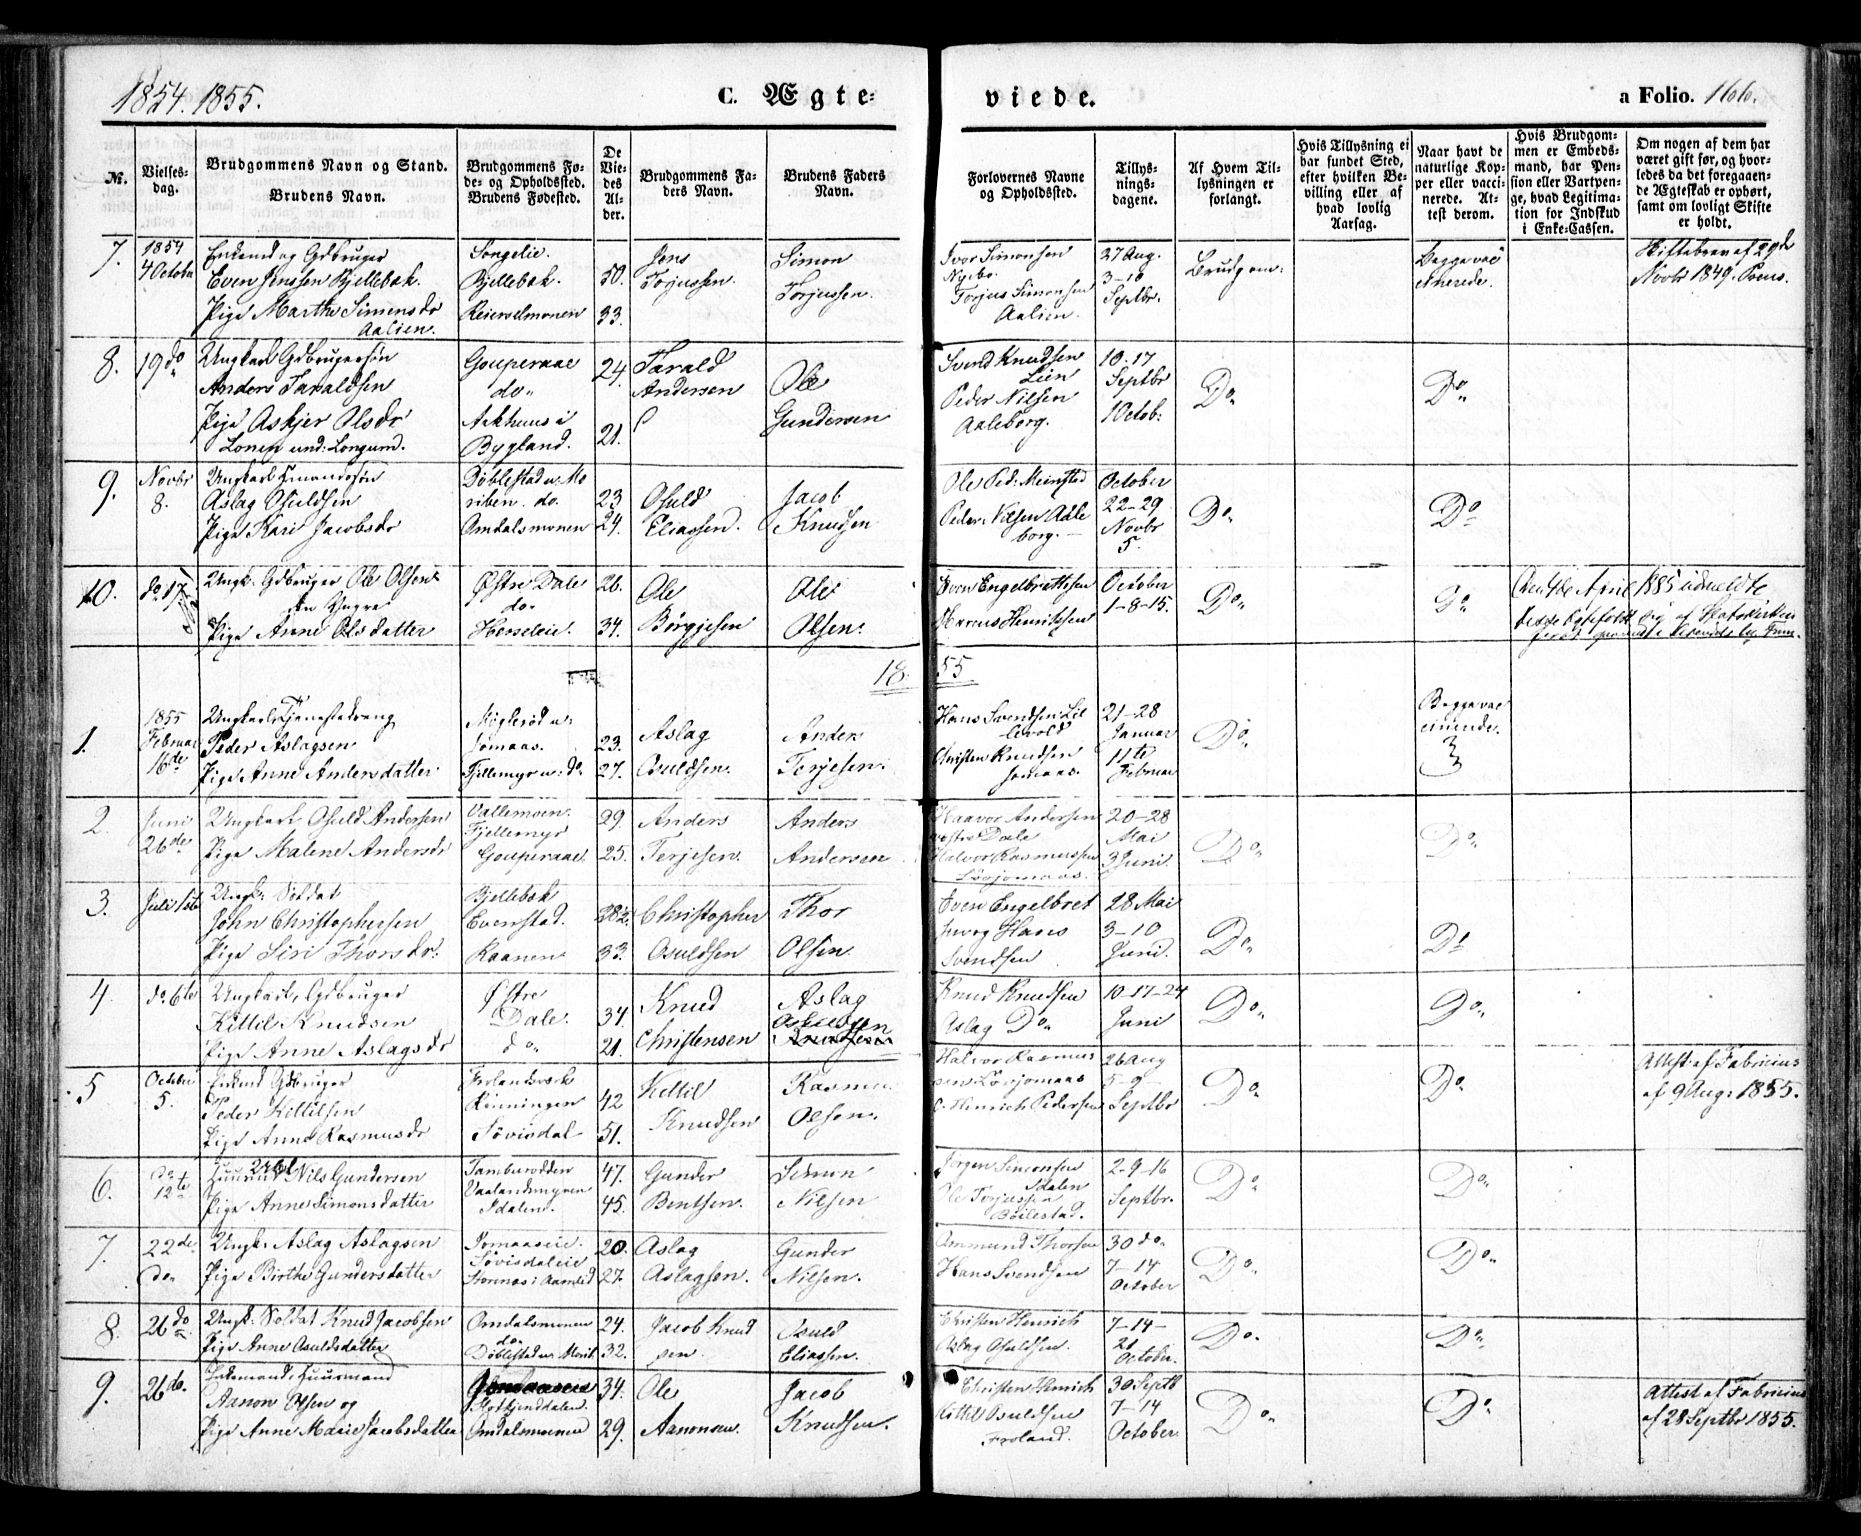 1854. 1855.
C. Ægte-
viede.
a Folio. 166.
№.
Vielses-
dag.
Brudgommens Navn og Stand.
Brudens Navn.
Brudgommens Fø-
de- og Opholdssted.
Brudens Fødested.
De
Vie-
des
Al-
der.
Brudgommens Fa-
ders Navn.
Brudens Faders
Navn.
Forlovernes Navne
og Opholdssted.
Tillys-
nings-
dagene.
Af Hvem Til-
lysningen er
forlangt.
Hvis Tillysning ei
har fundet Sted,
efter hvilken Be-
villing eller af
hvad lovlig
Aarsag.
Naar havt de
naturlige Kop-
per eller vacci-
nerede. At-
test derom.
Hvis Brudgom-
men er Embeds-
mand, har Pen-
sion eller Vartpen-
ge, hvad Legitima-
tion for Indskud
i Enke-Cassen.
Om nogen af dem har
været gift før, og hvor-
ledes da det foregaaen-
de Ægteskab er ophørt,
samt om lovligt Skifte
er holdt.
7.
1854
4 October
Enkemd og Gdbruger
Even Jenssen Bjellebek.
Pige Marthe Simonsdr
Aalien.
Songelie.
Bjellebek.
Reierselmonen
50.
33.
Jens
Torjussen.
Simon
Torjussen.
Ivor Simonsen
Torjus Simonsen
Aalien.
27 Aug.
3-10
Septbr.
Brudgom:
Begge vac
cinerede.
Skiftebrev af 29de
Novbr 1849.
8.
19 do
Ungkarl Gdbrugersøn
Anders Taraldsen
Pige Askjer Olsdr
Lonen und: Longum.
Gouperaae
do"
Askhuus i
Bygland.
24.
21.
Tarald
Andersen
Ole
Gundersen
Svend Knudsen
Lien
Peder Nilsen
Aaleborg.
10-17
Septbr
1 Octob:
Do"
Do"
9.
Novbr
8.
Ungkarl Huusmandssøn
Aslag Osuldsen
Pige Kari Jacobsdr
Døblestad u: Mo
riben. do.
Omdalsmonen
23
24.
Osuld
Eliassen.
Jacob
Knudsen
Ole Ped: Meinstad
Peder: Nilsen Aale
borg.
October
22-29
Novbr
5.
Do"
Do
10.
do 17
Ungk: Gdbruger Ole Olsen
den Yngre
Pige Anne Olsdatter
Østre Dale
do"
Heseleie.
26.
34.
Ole
Børgjesen
Ole
Olsen.
Even Engelbrettsen
Marcus Henrikssen
October
1-8-15.
Do"
Do
Den 4de April 1885 udmeldte
dette Ægtefolk sig af Statskirken
1855
1.
1855
Februar
16de
Ungkarl Tjenestedreng
Peder Aslagsen
Pige Anne Andersdatter
Miglerød u:
Jomaas.
Fjellemyr u: do
23.
27.
Aslag
Osuldsen.
Anders
Terjesen.
Hans Svendsen Lil
levold
Christen Knudsen
Jomaas.
21-28
Januar
11te
Februar
Do"
Begge vac
cinerede.
2.
Juni
26de
Ungkarl Osuld Andersen
Pige Malene Andersdr
Vallemoen.
Fjellemyr
Gouperaae.
29.
25.
Anders
Terjesen.
Anders
Andersen
Haavor Andersen
vestre Dale
Halvor Rasmussen
Løvjomaas.
20-28
Mai
3 Juni.
Do"
Do"
3.
Juli 1ste
Ungk: Soldat
John Christophersen
Pige Siri Thorsdr:
Bjellebek
Evenstad.
Raanen
38½
33.
Christopher
Osuldsen
Thor
Olsen.
Even Engelbret
sen og Hans
Svendsen
28 Mai
3-10
Juni.
Do"
Do
4.
do 6te
Ungkarl, Gdbruger
Kittil Knudsen
Pige Anne Aslagsdr
Østre
Dale.
do"
34.
21.
Knud
Christensen
Aslag
Osuldsen
Knudsen
Knud Knudsen
Aslag Do"
10-17-24
Juni
Do"
Do"
5
October
5.
Enkemd Gdbruger
Peder Kittilsen
Pige Anne Rasmusdr
Frolandsverk
Rønningen
Søvisdal
42
51.
Kittil
Knudsen
Rasmus
Olsen.
Halvor Rasmus
sen Løvjomaas
o. Hinrich Pedersen
26 Aug
5-9-
Septbr
Do"
Do"
Attest af Fabricius
af 9 Aug: 1855.
6.
do
12te
Ungkl Nils Gundersen
Pige Anne Simonsdatter
Tamburodden
Vaalandsmyren
Idalen.
47.
45.
Gunder
Bentsen.
Simon
Nilsen
Jørgen Simonsen
Idalen
Ole Torjussen
Bøilestad.
2-9-16
Septbr.
Do"
Do"
7.
22de
do"
Ungk: Aslag Aslagsen
Pige Birthe Gundersdatter
Jomaaseie.
Søvisdaleie
20.
27.
Aslag
Aslagsen.
Gunder
Nilsen.
Ammund Thorsen
Hans Svendsen
30 do"
7-14
October
Do"
Do"
8.
26 do
Ungk: Soldat Knud Jacobsen
Pige Anne Osuldsdatter
Omdalsmonen
do"
Døblestad u: Morib.
24.
32.
Jacob Knud
sen.
Osuld
Eliassen.
Christen Henrich
Aslag Osuldsen.
7-14-
21
October.
Do.
Do"
9.
26 do.
Enkemand, Huusmand
Aanon Olsen og
Pige Anne Marie Jacobsdatter
Omdalsmonen
34.
29.
Ole
Aanonsen.
Jacob
Knudsen.
Christen Henrich
Kittil Osuldsen
Froland.
30 Septb
7-14
October
Do"
Do"
Attest af Fabricius
af 28 Septbr 1855.